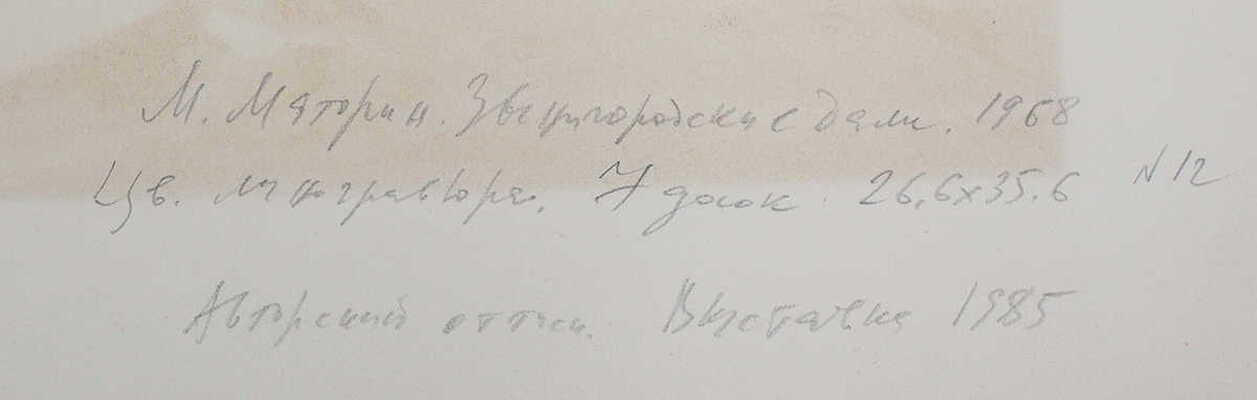 М. Маторин. Звенигородские дали. 1968
Цв. линогравюра. 7 досок 26,6х35.6 N 12
Авторский оттиск. Выставка 1985